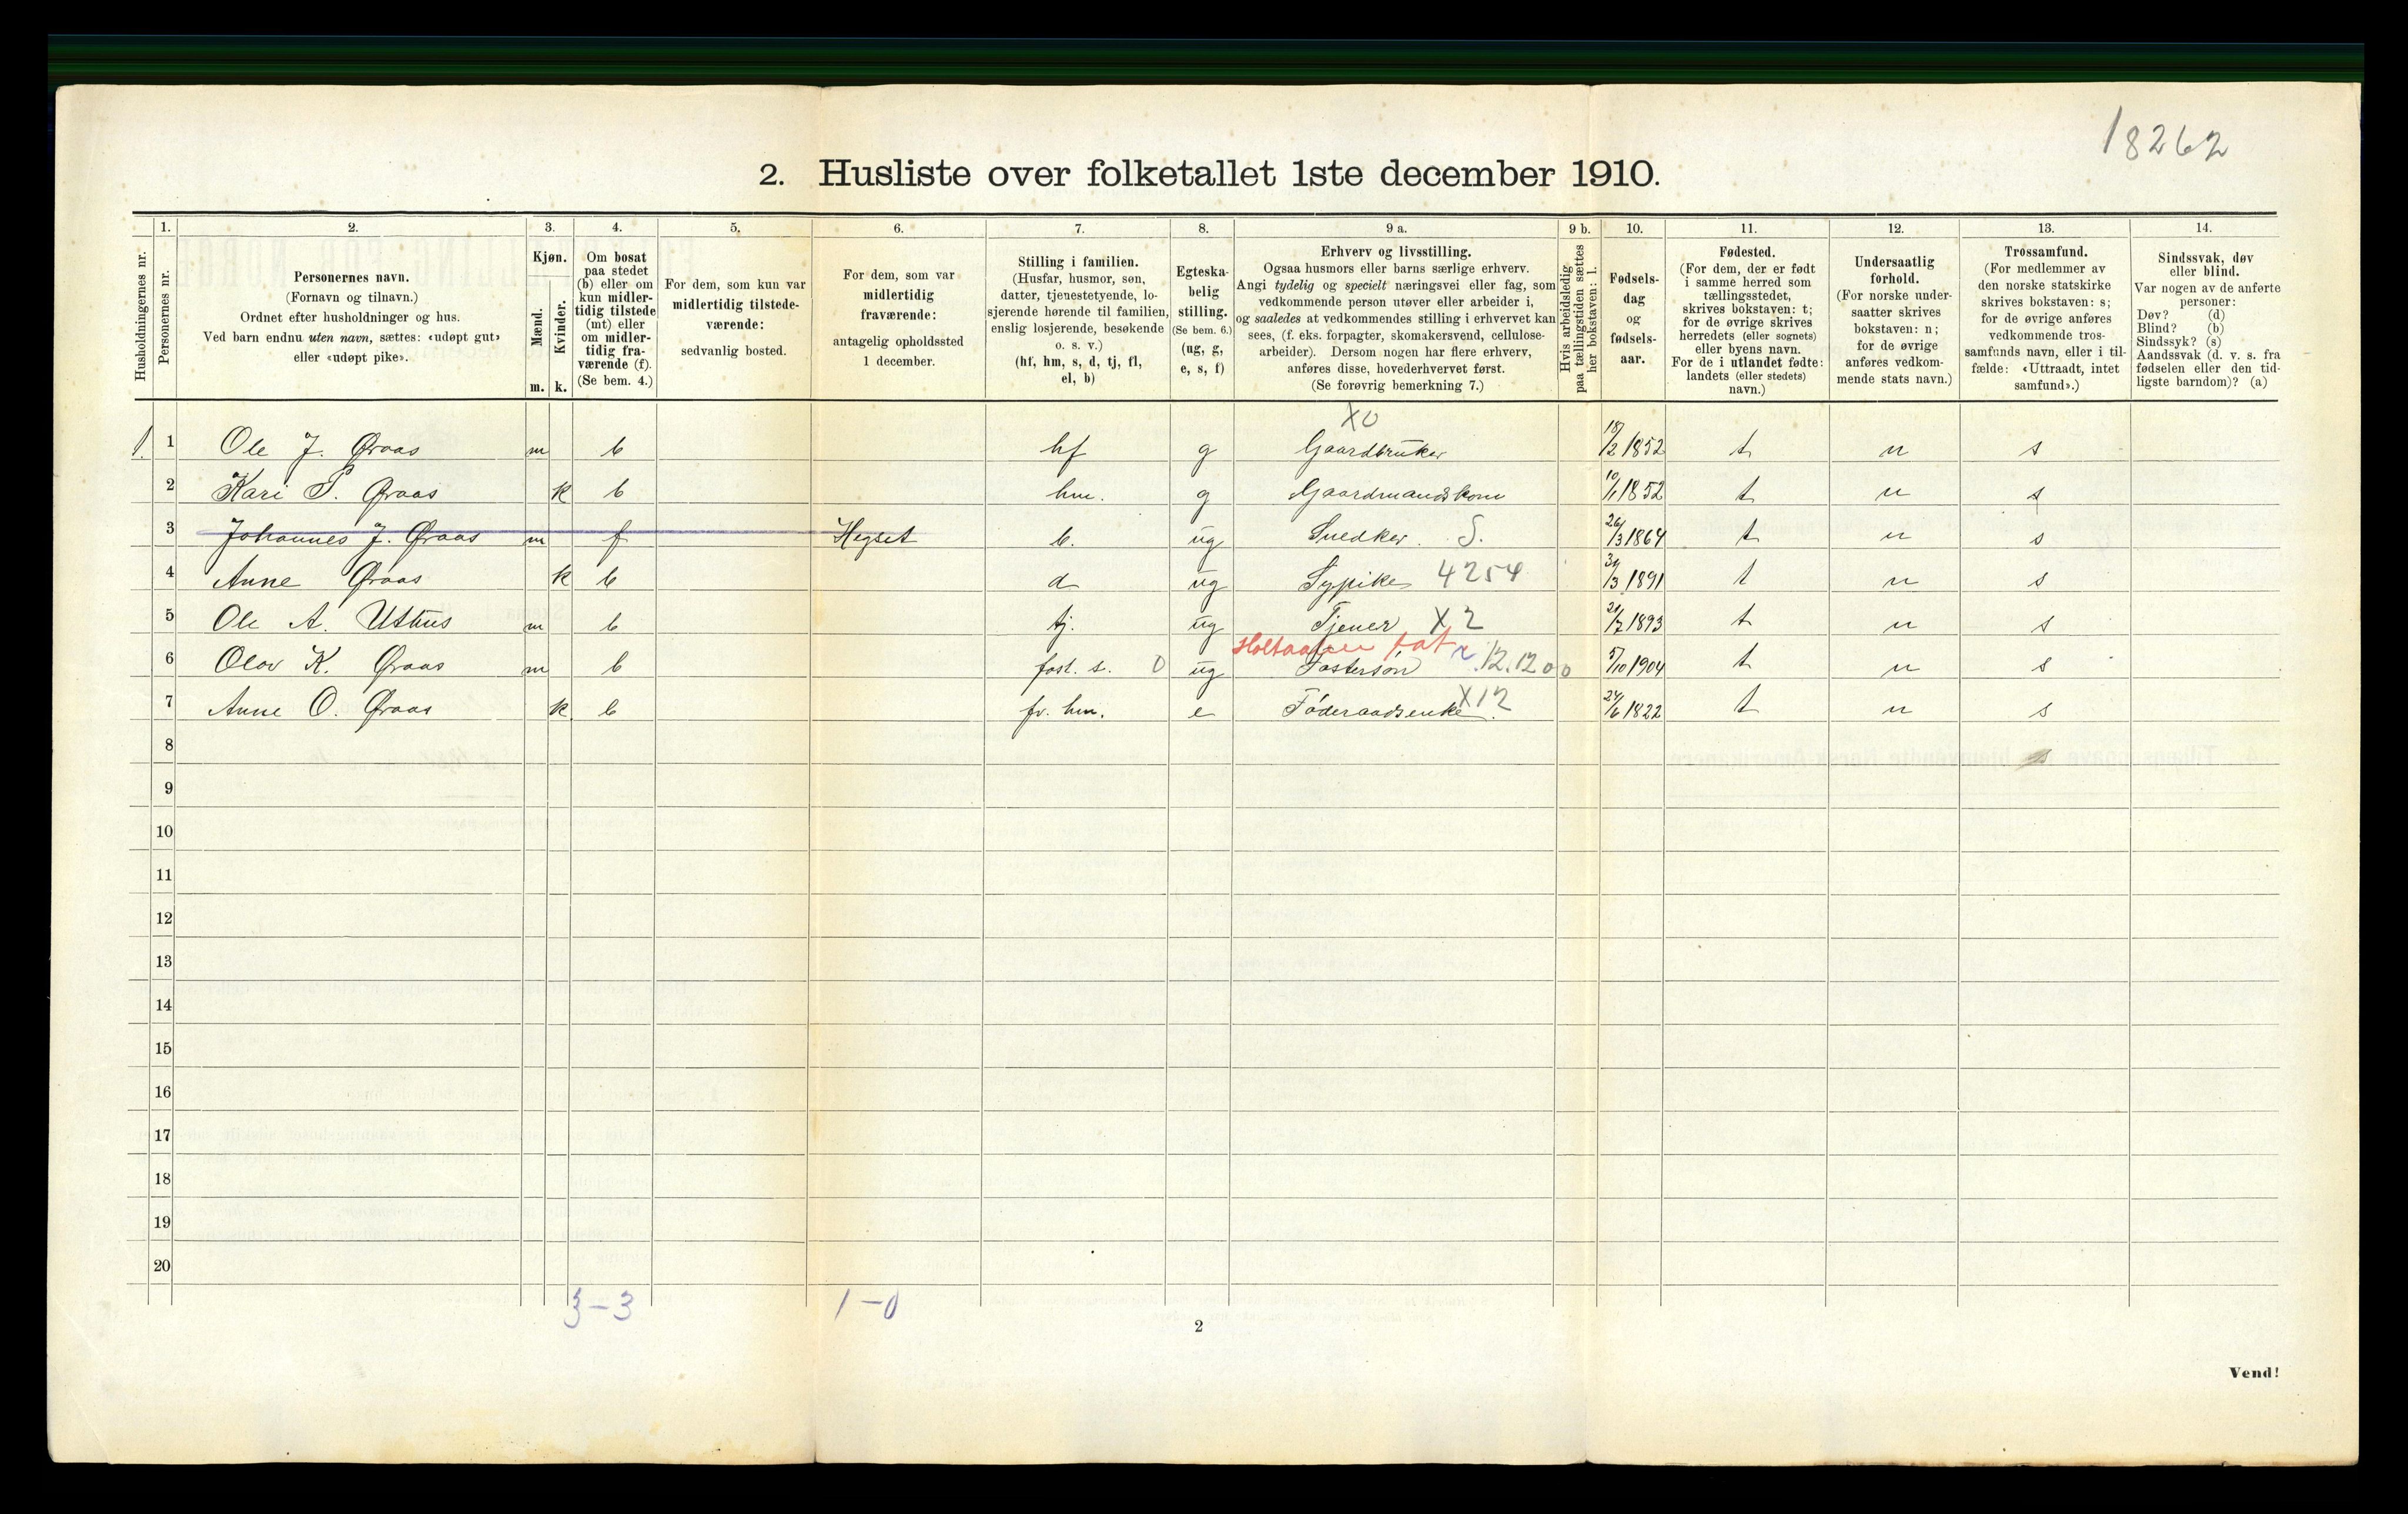 18262
2. Husliste over folketallet 1ste december 1910.
1. 2. 3. 4. 5. 6. 7. 8. 9 a. 9 b. 10. 11. 12. 13. 14.
Husholdningernes nr.
Personernes nr.
Personernes navn.
(Fornavn og tilnavn.)
Ordnet efter husholdninger og hus.
Ved barn endnu uten navn, sættes: «udøpt gut»
eller «udøpt pike».
Kjøn.
Mænd.
m.
Kvinder.
k.
Om bosat
paa stedet
(b) eller om
kun midler-
tidig tilstede
(mt) eller
om midler-
tidig fra-
værende (f).
(Se bem. 4.)
For dem, som kun var
midlertidig tilstede-
værende:
sedvanlig bosted.
For dem, som var
midlertidig
fraværende:
antagelig opholdssted
1 december.
Stilling i familien.
(Husfar, husmor, søn,
datter, tjenestetyende, lo-
sjerende hørende til familien,
enslig losjerende, besøkende
o. s. v.)
(hf, hm, s, d, tj, fl,
el, b)
Egteska-
belig
stilling.
(Se bem. 6.)
(ug, g,
e, s, f)
Erhverv og livsstilling.
Ogsaa husmors eller barns særlige erhverv.
Angi tydelig og specielt næringsvei eller fag, som
vedkommende person utøver eller arbeider i,
og saaledes at vedkommendes stilling i erhvervet kan
sees, (f. eks. forpagter, skomakersvend, cellulose-
arbeider). Dersom nogen har flere erhverv,
anføres disse, hovederhvervet først.
(Se forøvrig bemerkning 7.)
Hvis arbeidsledig
paa tællingstiden sættes
her bokstaven: l.
Fødsels-
dag
og
fødsels-
aar.
Fødested.
(For dem, der er født
i samme herred som
tællingsstedet,
skrives bokstaven: t;
for de øvrige skrives
herredets (eller sognets)
eller byens navn.
For de i utlandet fødte:
landets (eller stedets)
navn.)
Undersaatlig
forhold.
(For norske under-
saatter skrives
bokstaven: n;
for de øvrige
anføres vedkom-
mende stats navn.)
Trossamfund.
(For medlemmer av
den norske statskirke
skrives bokstaven: s;
for de øvrige anføres
vedkommende tros-
samfunds navn, eller i til-
fælde: «Uttraadt, intet
samfund».)
Sindssvak, døv
eller blind.
Var nogen av de anførte
personer:
Døv? (d)
Blind? (b)
Sindssyk? (s)
Aandssvak (d. v. s. fra
fødselen eller den tid-
ligste barndom)? (a)
X0
1. 1 Ole J. Øraas m b hf g Gaardbruker 18/2 1852 t n s
2 Kari P. Øraas k b hm. g Gaardmandskone 10/1 1852 t n s
3 Johannes J. Øraas m f Hegset b. ug Snedker. S. 26/3 1864 t n s
4 Anne Øraas k b d ug Sypike 4254 /3 1891 t n s
5 Ole A. Usthus m b tj. ug Tjener X2 21/7 1893 t n s
Holtaalen fat.
6 Olav K. Øraas m b fost. s. 0 ug Fostersøn 12.1200 5/10 1904 t n s
7 Anne O. Øraas k b fv. hm. e Føderaadsenke. X12 24/6 1822 t n s
8
9
10
11
12
13
14
15
16
17
18
19
20
3-3 1-0
2
Vend!